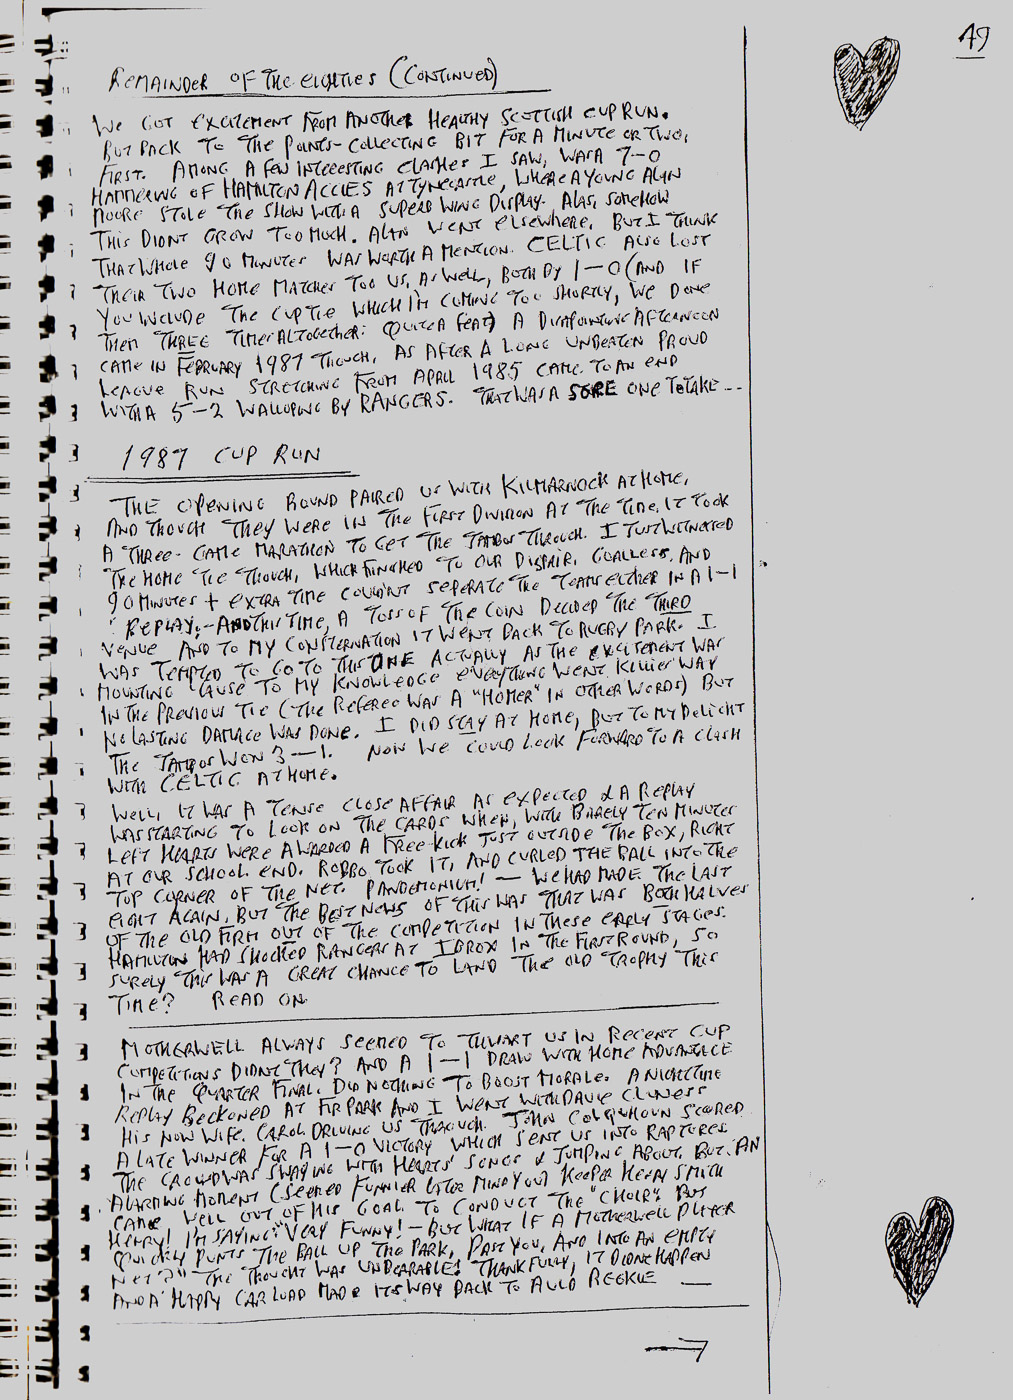 49
REMAINDER OF THE EIGHTIES (CONTINUED)
WE GOT EXCITEMENT FROM ANOTHER HEALTHY SCOTTISH CUP RUN.
BUT BACK TO THE POINTS-COLLECTING BIT FOR A MINUTE OR TWO,
FIRST. AMONG A FEW INTERESTING CLASHES I SAW, WAS A 7-0
HAMMERING OF HAMILTON ACCIES AT TYNECASTLE, WHERE A YOUNG ALAN
MOORE STOLE THE SHOW WITH A SUPERB WING DISPLAY. ALAS, SOMEHOW
THIS DIDNT GROW TOO MUCH. ALAN WENT ELSEWHERE. BUT I THINK
THAT WHOLE 90 MINUTES WAS WORTH A MENTION. CELTIC ALSO LOST
THEIR TWO HOME MATCHES TOO US, AS WELL, BOTH BY 1-0 (AND IF
YOU INCLUDE THE CUP TIE WHICH I'M COMING TOO SHORTLY, WE DONE
THEM THREE TIMES ALTOGETHER: QUITE A FEAT) A DISAPPOINTING AFTERNOON
CAME IN FEBRUARY 1987 THOUGH, AS AFTER A LONG UNBEATEN PROUD
LEAGUE RUN STRETCHING FROM APRIL 1985 CAME TO AN END
WITH A 5-2 WALLOPING BY RANGERS. THAT WAS A SORE ONE TO TAKE ---
1987 CUP RUN
THE OPENING ROUND PAIRED US WITH KILMARNOCK AT HOME,
AND THOUGH THEY WERE IN THE FIRST DIVISION AT THE TIME, IT TOOK
A THREE-GAME MARATHON TO GET THE JAMBOS THROUGH. I JUST WITNESSED
THE HOME TIE THOUGH, WHICH FINISHED TO OUR DISPAIR, GOALLESS. AND
90 MINUTES + EXTRA TIME COULDN'T SEPERATE THE TEAMS EITHER IN A 1-1
REPLAY:- ANOTHER TIME, A TOSS OF THE COIN DECIDED THE THIRD
VENUE AND TO MY CONSTERNATION IT WENT BACK TO RUGBY PARK. I
WAS TEMPTED TO GO TO THIS ONE ACTUALLY AS THE EXCITEMENT WAS
MOUNTING 'CAUSE TO MY KNOWLEDGE EVERYTHING WENT KILLIES' WAY
IN THE PREVIOUS TIE (THE REFEREE WAS A "HOMER" IN OTHER WORDS) BUT
NO LASTING DAMAGE WAS DONE. I DID STAY AT HOME, BUT TO MY DELIGHT
THE JAMBOS WON 3-1. NOW WE COULD LOOK FORWARD TO A CLASH
WITH CELTIC AT HOME.
WELL, IT WAS A TENSE CLOSE AFFAIR AS EXPECTED & A REPLAY
WAS STARTING TO LOOK ON THE CARDS WHEN, WITH BARELY TEN MINUTES
LEFT HEARTS WERE AWARDED A FREE-KICK JUST OUTSIDE THE BOX, RIGHT
AT OUR SCHOOL END. ROBBO TOOK IT, AND CURLED THE BALL INTO THE
TOP CORNER OF THE NET. PANDEMONIUM! - WE HAD MADE THE LAST
EIGHT AGAIN, BUT THE BEST NEWS OF THIS WAS THAT WAS BOTH HALVES
OF THE OLD FIRM OUT OF THE COMPETITION IN THESE EARLY STAGES.
HAMILTON HAD SHOCKED RANGERS AT IBROX IN THE FIRST ROUND, SO
SURELY THIS WAS A GREAT CHANCE TO LAND THE OLD TROPHY THIS
TIME? READ ON
MOTHERWELL ALWAYS SEEMED TO THWART US IN RECENT CUP
COMPETITIONS DIDNT THEY? AND A 1-1 DRAW WITH HOME ADVANTAGE
IN THE QUARTER FINAL, DID NOTHING TO BOOST MORALE. A NIGHT TIME
REPLAY BECKONED AT FIR PARK AND I WENT WITH DAVIE CLUNESS
HIS NOW WIFE, CAROL DRIVING US THROUGH. JOHN COLQUHOUN SCORED
A LATE WINNER FOR A 1-0 VICTORY WHICH SENT US INTO RAPTURES.
THE CROWD WAS SWAYING WITH HEARTS' SONGS & JUMPING ABOUT, BUT AN
ALARMING MOMENT (SEEMED FUNNIER LATER MIND YOU) KEEPER HENRY SMITH
CAME, WELL OUT OF HIS GOAL TO CONDUCT THE "CHOIR". BUT
HENRY! I'M SAYING "VERY FUNNY! - BUT WHAT IF A MOTHERWELL PLAYER
QUICKLY PUNTS THE BALL UP THE PARK, PAST YOU, AND INTO AN EMPTY
NET?" - THE THOUGHT WAS UNBEARABLE! THANKFULLY, IT DIDNT HAPPEN
AND A HAPPY CAR LOAD MADE ITS WAY BACK TO AULD REEKIE —